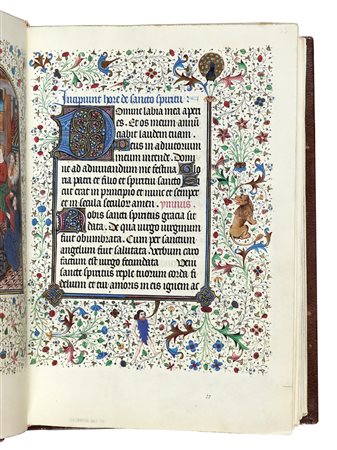 Incipiunt hore de sancto spiritu
Domine labia mea aperi
es. Et os meum annun
ciabit laudem tuam.
Deus in adiutorium
meum intende. Domi
ne ad adiuvandum me festina Glo
ria patri et filio et spiritui sancto
Sicut erat in principio et nunc et semper
et in secula seculorum amen. ymnus.
Nobis sancti spiritus gracia sit
data. De qua virgo virginum
fuit obumbrata. Cum per sanctum
angelum fuit salutata. Verbum caro
factum est virgo fecundata Veni
sancte spiritus reple tuorum corda fi
delium et tui amoris in eis ignem ac
27